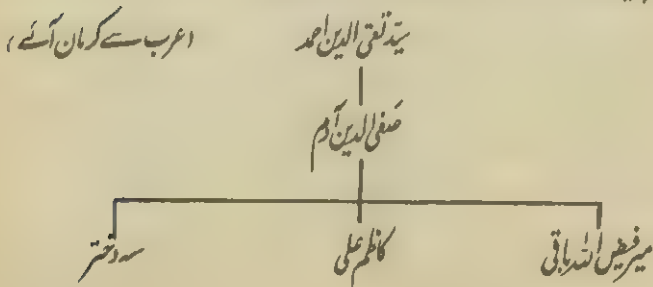 سید تقی الدین احمد (عرب سے کرمان آئے)
صفی الدین آدم
میر فیض اللہ باقی کاظم علی سہ دختر